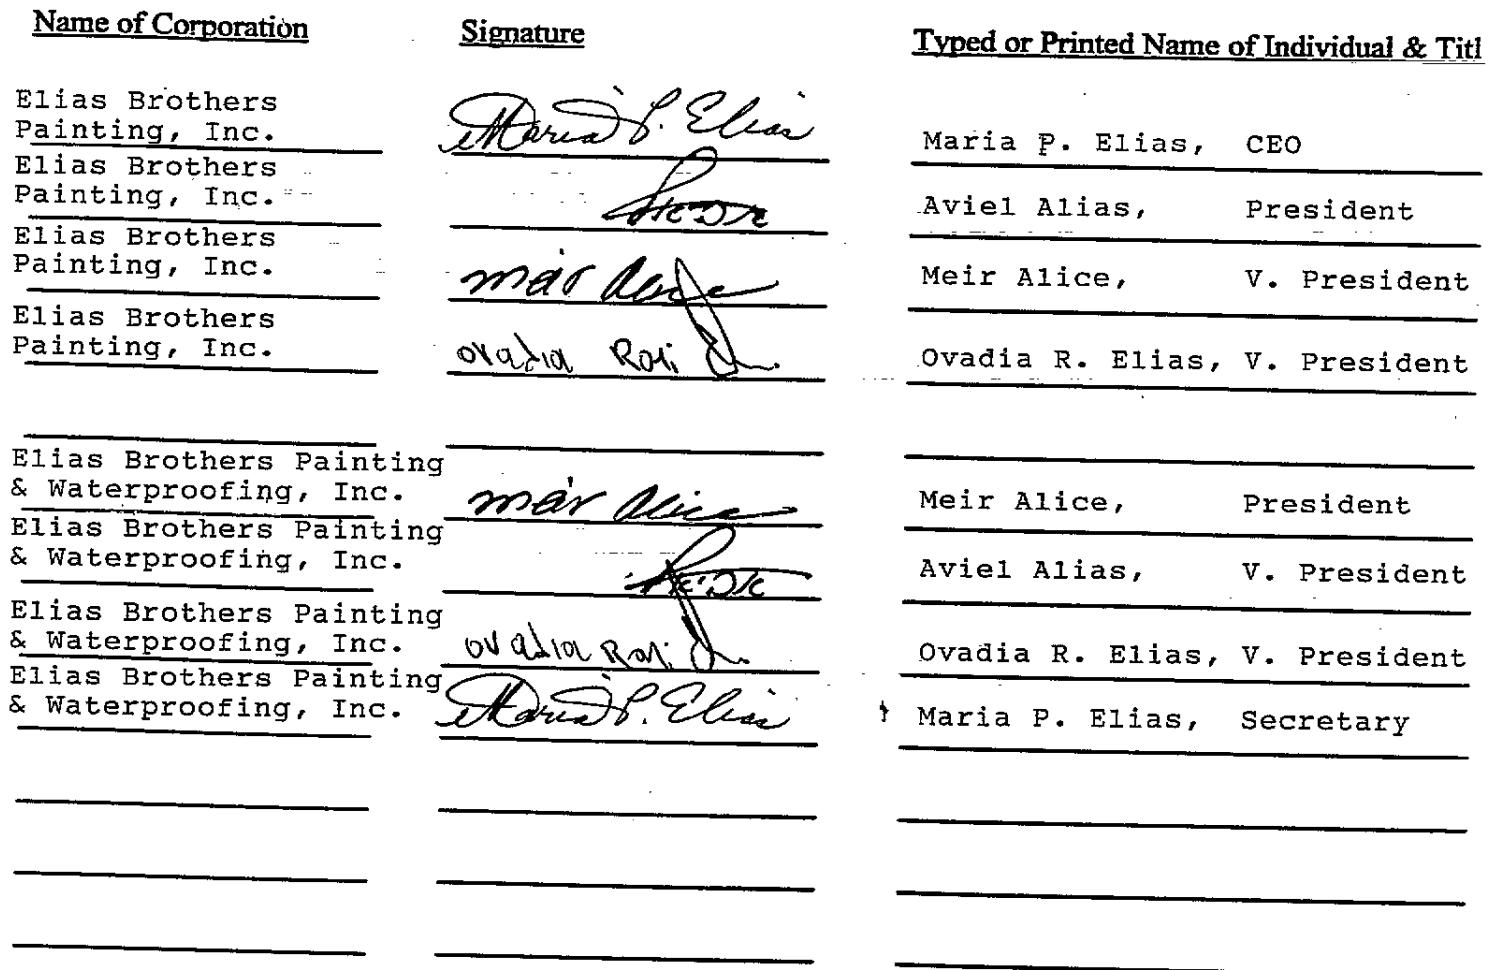 Name of Corporation Signature Typed or Printed Name of Individual & Titl
Elias Brothers
Painting, Inc. Maria P. Elias Maria P. Elias, CEO
Elias Brothers
Painting, Inc. Aviel Alias, President
Elias Brothers
Painting, Inc. Meir Alice Meir Alice, V. President
Elias Brothers
Painting, Inc. Ovadia Roni Ovadia R. Elias, V. President
Elias Brothers Painting
& Waterproofing, Inc. Meir Alice Meir Alice, President
Elias Brothers Painting
& Waterproofing, Inc. Aviel Alias, V. President
Elias Brothers Painting
& Waterproofing, Inc. Ovadia Roni Ovadia R. Elias, V. President
Elias Brothers Painting
& Waterproofing, Inc. Maria P. Elias Maria P. Elias, Secretary